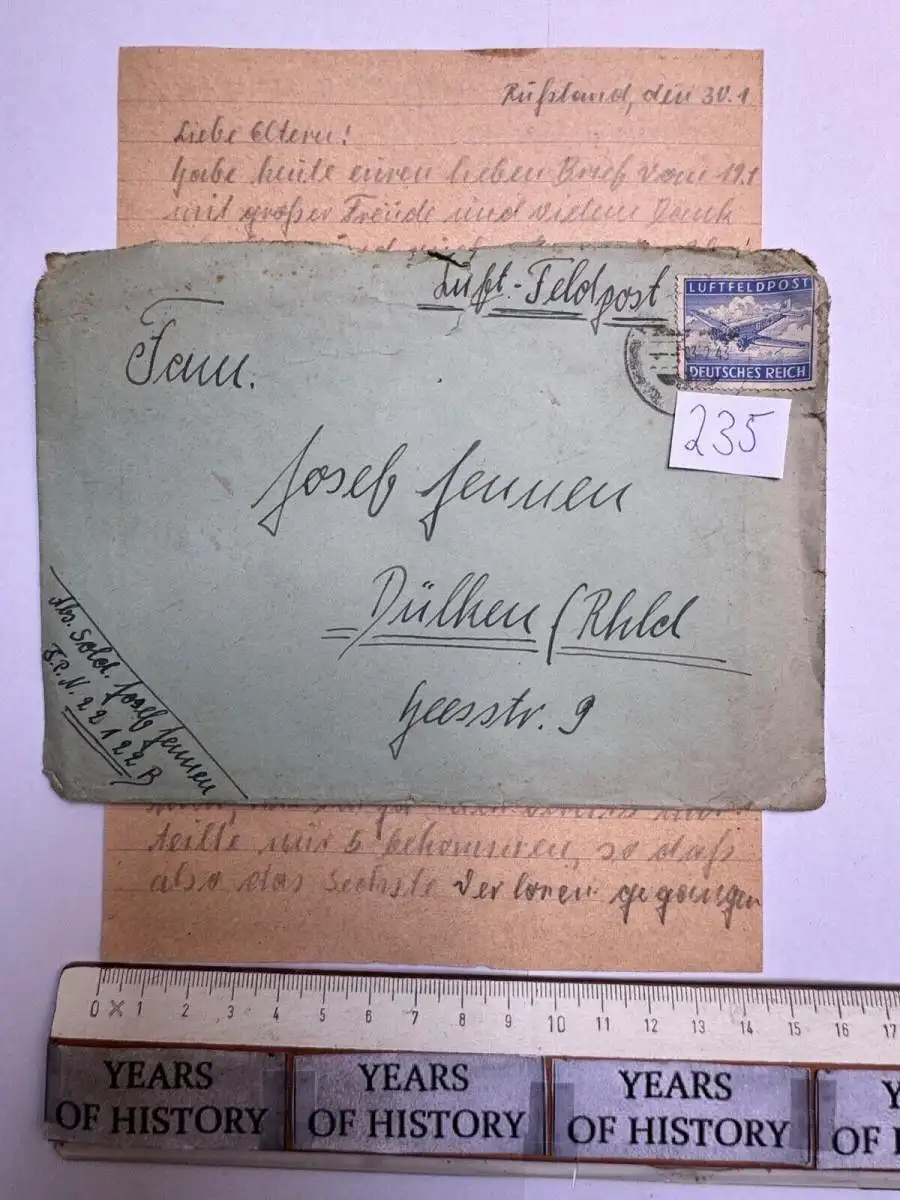 Rußland, den 30.1
Liebe Eltern!
Habe heute euren lieben Brief vom 19.1
mit großer Freude und vielem Dank
Luft-Feldpost
LUFTFELDPOST
DEUTSCHES REICH
235
Fam.
Josef Jennen
Dülken (Rhld
Geesstr. 9
Abs. Sold. Josef Jennen
F.P.N. 22122 B
teilte nur 5 bekommen, so daß
also das Sechste verloren gegangen
0 1 2 3 4 5 6 7 8 9 10 11 12 13 14 15 16 17
YEARS OF HISTORY
YEARS OF HISTORY
YEARS OF HISTORY
Y
OF